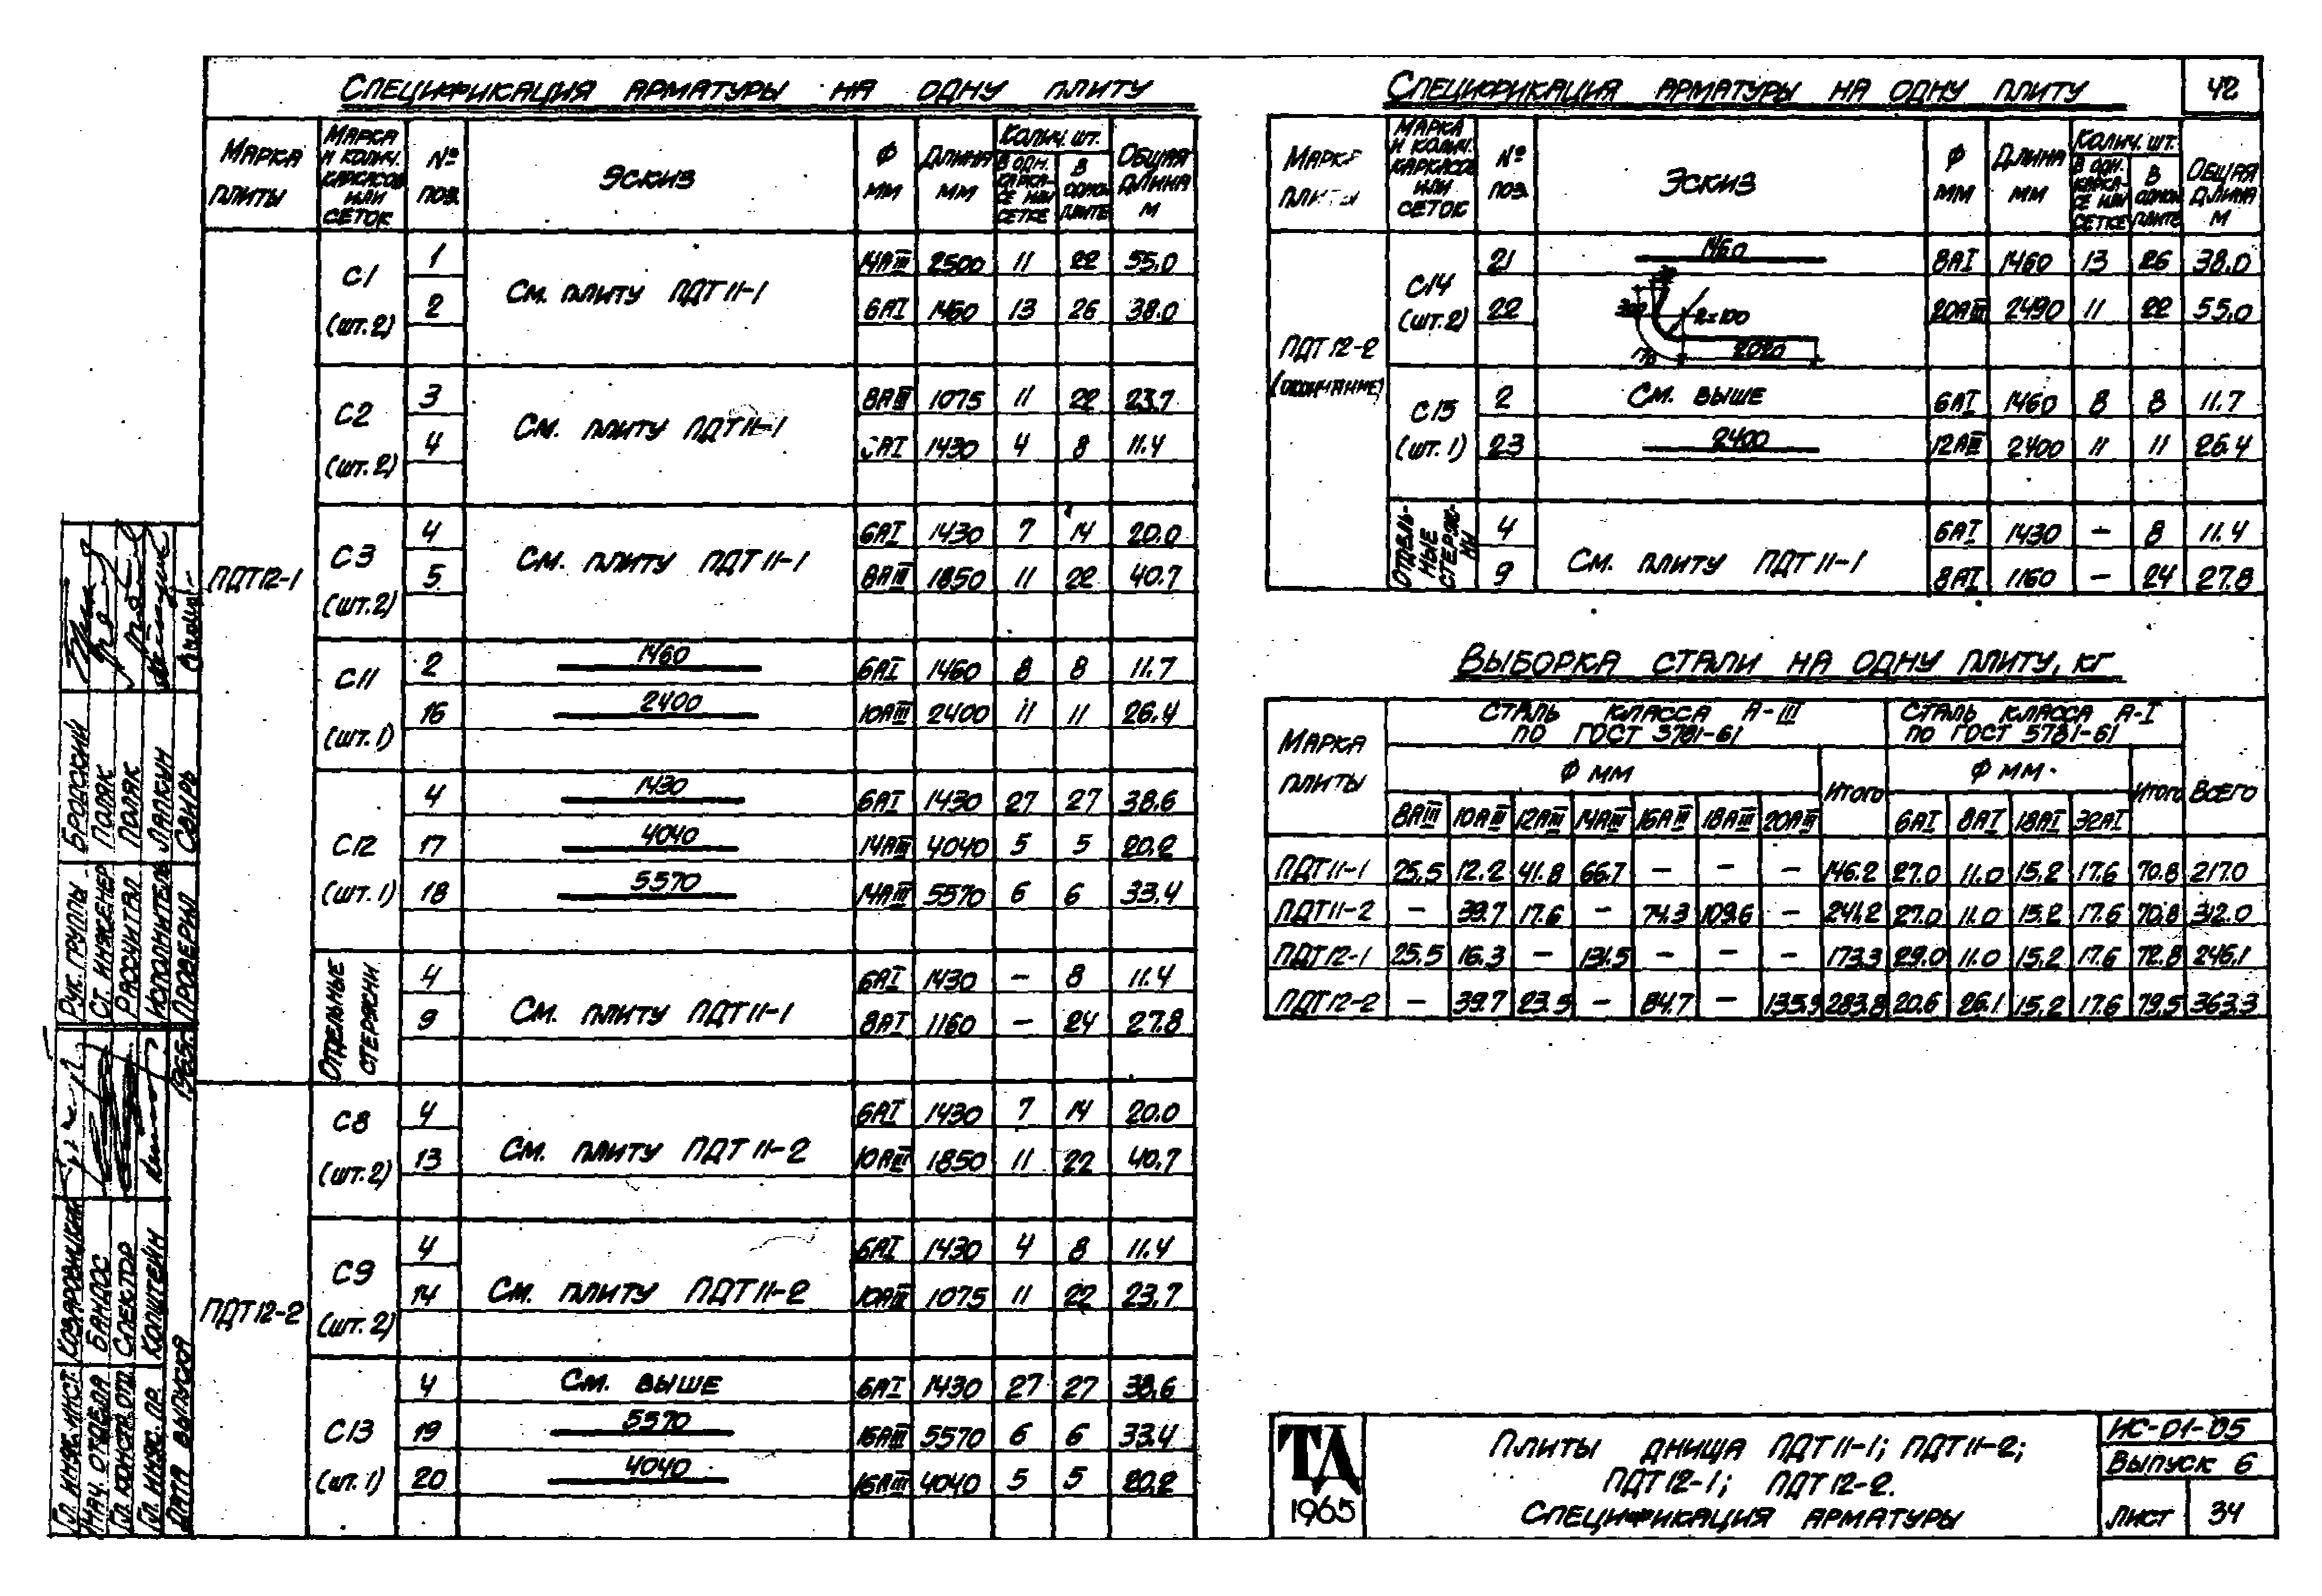 Спецификация арматуры на одну плиту
Марка плиты | Марка и колич. каркасов или сеток | № поз. | Эскиз | Ф мм | Длина мм | Колич. шт. | Общая длина м
В одн. каркасе или сетке | В одной плите
ПДТ12-1
С1 (шт.2) | См. плиту ПДТ11-1
1 | 14АIII | 2500 | 11 | 22 | 55,0
2 | 6АI | 1460 | 13 | 26 | 38,0
С2 (шт.2) | См. плиту ПДТ11-1
3 | 8АIII | 1075 | 11 | 22 | 23,7
4 | АI | 1430 | 4 | 8 | 11.4
С3 (шт.2) | См. плиту ПДТ11-1
4 | 6АI | 1430 | 7 | 14 | 20.0
5 | 8АIII | 1850 | 11 | 22 | 40.7
С11 (шт.1)
2 | 1460 | 6АI | 1460 | 8 | 8 | 11.7
16 | 2400 | 10АIII | 2400 | 11 | 11 | 26.4
С12 (шт.1)
4 | 1430 | 6АI | 1430 | 27 | 27 | 38.6
17 | 4040 | 14АIII | 4040 | 5 | 5 | 20.2
18 | 5570 | 14АIII | 5570 | 6 | 6 | 33.4
Отдельные стержни | См. плиту ПДТ11-1
4 | 6АI | 1430 | – | 8 | 11.4
9 | 8АI | 1160 | – | 24 | 27.8
ПДТ12-2
С8 (шт.2) | См. плиту ПДТ11-2
4 | 6АI | 1430 | 7 | 14 | 20.0
13 | 10АIII | 1850 | 11 | 22 | 40.7
С9 (шт.2) | См. плиту ПДТ11-2
4 | 6АI | 1430 | 4 | 8 | 11.4
14 | 10АIII | 1075 | 11 | 22 | 23.7
С13 (шт.1)
4 | См. выше | 6АI | 1430 | 27 | 27 | 38.6
19 | 5570 | 16АIII | 5570 | 6 | 6 | 33.4
20 | 4040 | 16АIII | 4040 | 5 | 5 | 20.2
Спецификация арматуры на одну плиту
42
Марка плиты | Марка и колич. каркасов или сеток | № поз. | Эскиз | Ф мм | Длина мм | Колич. шт. | Общая длина м
В одн. каркасе или сетке | В одной плите
ПДТ12-2 (окончание)
С14 (шт.2)
21 | 1460 | 8АI | 1460 | 13 | 26 | 38.0
22 | R=100 | 2020 | 20АIII | 2490 | 11 | 22 | 55.0
С15 (шт.1)
2 | См. выше | 6АI | 1460 | 8 | 8 | 11.7
23 | 2400 | 12АIII | 2400 | 11 | 11 | 26.4
Отдельные стержни | См. плиту ПДТ11-1
4 | 6АI | 1430 | – | 8 | 11.4
9 | 8АI | 1160 | – | 24 | 27.8
Выборка стали на одну плиту, кг
Марка плиты | Сталь класса А-III по ГОСТ 5781-61 | Сталь класса А-I по ГОСТ 5781-61 | Всего
Ф мм | Итого | Ф мм | Итого
8АIII | 10АIII | 12АIII | 14АIII | 16АIII | 18АIII | 20АIII | 6АI | 8АI | 18АI | 32АI
ПДТ11-1 | 25,5 | 12.2 | 41.8 | 66.7 | – | – | – | 146.2 | 27.0 | 11.0 | 15.2 | 17.6 | 70.8 | 217.0
ПДТ11-2 | – | 39.7 | 17.6 | – | 74.3 | 109.6 | – | 241,2 | 27.0 | 11.0 | 15.2 | 17.6 | 70.8 | 312.0
ПДТ12-1 | 25.5 | 16.3 | – | 131.5 | – | – | – | 173.3 | 29.0 | 11.0 | 15.2 | 17.6 | 72.8 | 246.1
ПДТ12-2 | – | 39.7 | 23.5 | – | 84.7 | – | 135.9 | 283.8 | 20.6 | 26.1 | 15.2 | 17.6 | 79.5 | 363.3
Рук. группы | Бродский
Ст. инженер | Поляк
Рассчитал | Поляк
Исполнитель | Лапкин
Проверил | Свирь
Гл. инж. инст.
Нач. отдела | Бандос
Гл. констр. отд. | Спектор
Гл. инж. пр. | Копштейн
Дата выпуска | 1965г.
ТА
1965
Плиты днища ПДТ11-1; ПДТ11-2;
ПДТ12-1; ПДТ12-2.
Спецификация арматуры
ИС-01-05
Выпуск 6
Лист 34